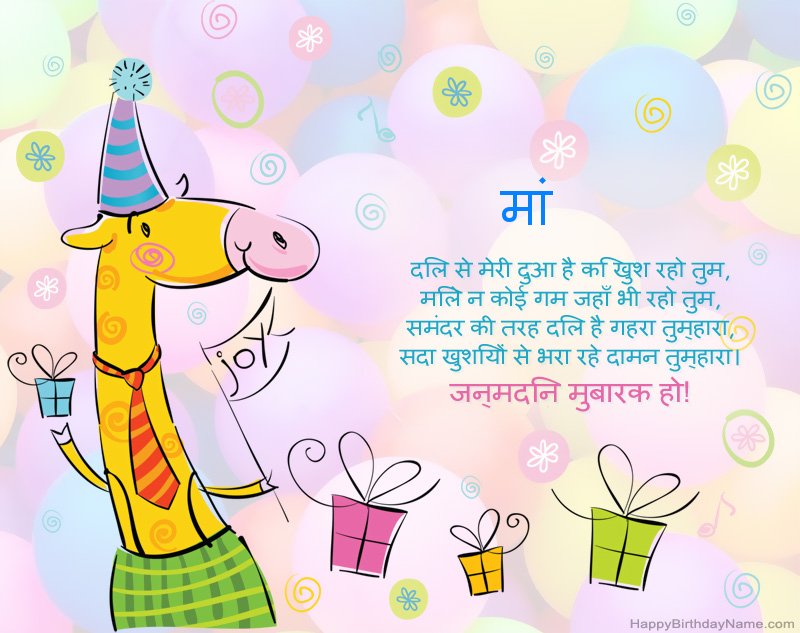 मां
दलि से मेरी दुआ है कि खुश रहो तुम,
मलिे न कोई गम जहाँ भी रहो तुम,
समंदर की तरह दलि है गहरा तुम्हारा,
सदा खुशयिों से भरा रहे दामन तुम्हारा।
जन्मदनि मुबारक हो!
joy
HappyBirthdayName.com